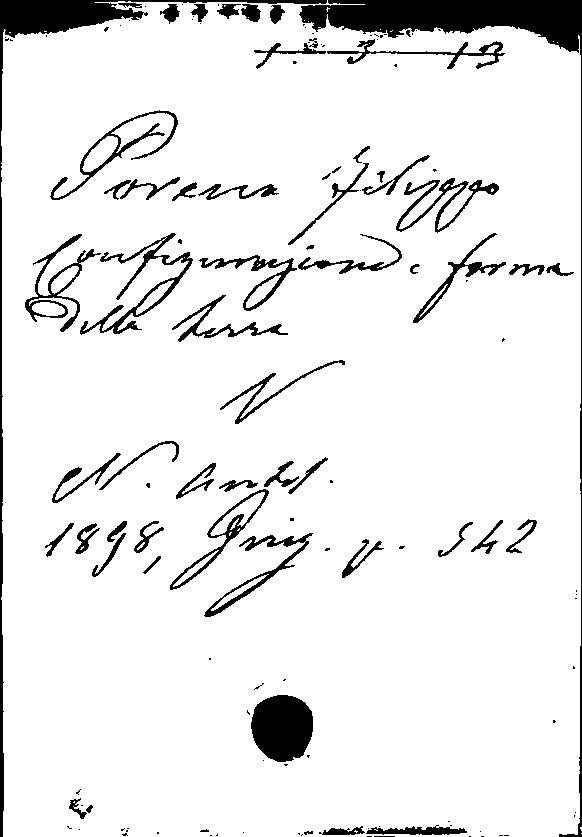 1. 3. 13
Porena Filippo
Configurazione e forma
della terra
V
N. Antol.
1898, Giug. p. 542